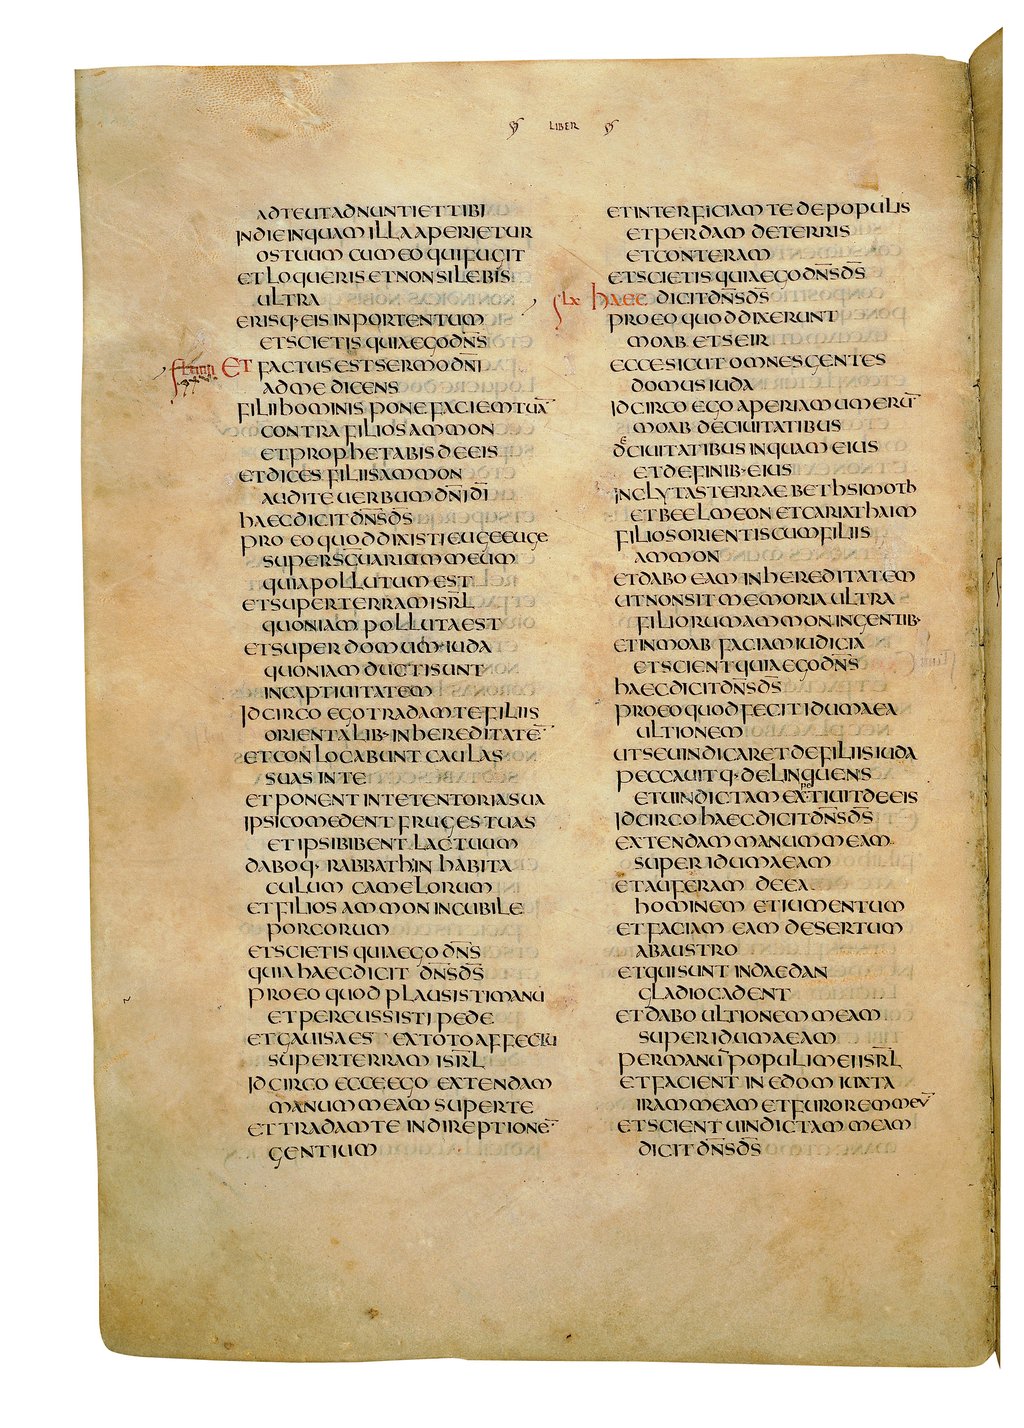 LIBER
ADTEUTADNUNTIETTIBI
INDIEINQUAMILLAAPERIETUR
OSTUUMCUMEOQUIFUGIT
ETLOQUERISETNONSILEBIS
ULTRA
ERISQ·EISINPORTENTUM
ETSCIETISQUIAEGODN̅S
ET FACTUSESTSERMODN̅I
ADMEDICENS
FILIIHOMINISPONEFACIEMTUA̅
CONTRAFILIOSAMMON
ETPROPHETABISDEEIS
ETDICESFILIISAMMON
AUDITEUERBUMDN̅IDI̅
HAECDICITDN̅SDS̅
PROEOQUODDIXISTIEUGEEUGE
SUPERSCUARIUMMEUM
QUIAPOLLUTUMEST
ETSUPERTERRAMISRL̅
QUONIAMPOLLUTAEST
ETSUPERDOMUM·IUDA
QUONIAMDUCTISUNT
INCAPTIUITATEM
IDCIRCOEGOTRADAMTEFILIIS
ORIENTALIB·INHEREDITATE̅
ETCONLOCABUNTCAULAS
SUASINTE
ETPONENTINTETENTORIASUA
IPSICOMEDENTFRUGESTUAS
ETIPSIBIBENTLACTUUM
DABOQ·RABBATHINHABITA
CULUMCAMELORUM
ETFILIOSAMMONINCUBILE
PORCORUM
ETSCIETISQUIAEGODN̅S
QUIAHAECDICITDN̅SDS̅
PROEOQUODPLAUSISTIMANU
ETPERCUSSISTIPEDE
ETGAUISAES EXTOTOAFFECTU
SUPERTERRAMISRL̅
IDCIRCOECCEEGOEXTENDAM
MANUMMEAMSUPERTE
ETTRADAMTEINDIREPTIONE̅
GENTIUM
ETINTERFICIAMTEDEPOPULIS
ETPERDAMDETERRIS
ETCONTERAM
ETSCIETISQUIAEGODN̅SDS̅
LX HAEC DICITDN̅SDS̅
PROEOQUODDIXERUNT
MOABETSEIR
ECCESICUTOMNESGENTES
DOMUSIUDA
IDCIRCOEGOAPERIAMUMERU̅
MOABDECIUITATIBUS
DECIUITATIBUSINQUAMEIUS
ETDEFINIB·EIUS
INCLYTASTERRAEBETHSIMOTH
ETBEELMEONETCARIATHAIM
FILIOSORIENTISCUMFILIIS
AMMON
ETDABOEAMINHEREDITATEM
UTNONSITMEMORIAULTRA
FILIORUMAMMONINGENTIB·
ETINMOABFACIAMIUDICIA
ETSCIENTQUIAEGODN̅S
HAECDICITDN̅SDS̅
PROEOQUODFECITIDUMAEA
ULTIONEM
UTSEUINDICARETDEFILIISIUDA
PECCAUITQ·DELINQUENS
ETUINDICTAMEXPETIUITDEEIS
IDCIRCOHAECDICITDN̅SDS̅
EXTENDAMMANUMMEAM
SUPERIDUMAEAM
ETAUFERAMDEEA
HOMINEMETIUMENTUM
ETFACIAMEAMDESERTUM
ABAUSTRO
ETQUISUNTINDAEDAN
GLADIOCADENT
ETDABOULTIONEMMEAM
SUPERIDUMAEAM
PERMANU̅POPULIMEIISRL̅
ETFACIENTINEDOMIUXTA
IRAMMEAMETFUROREMMEU̅
ETSCIENTUINDICTAMMEAM
DICITDN̅SDS̅